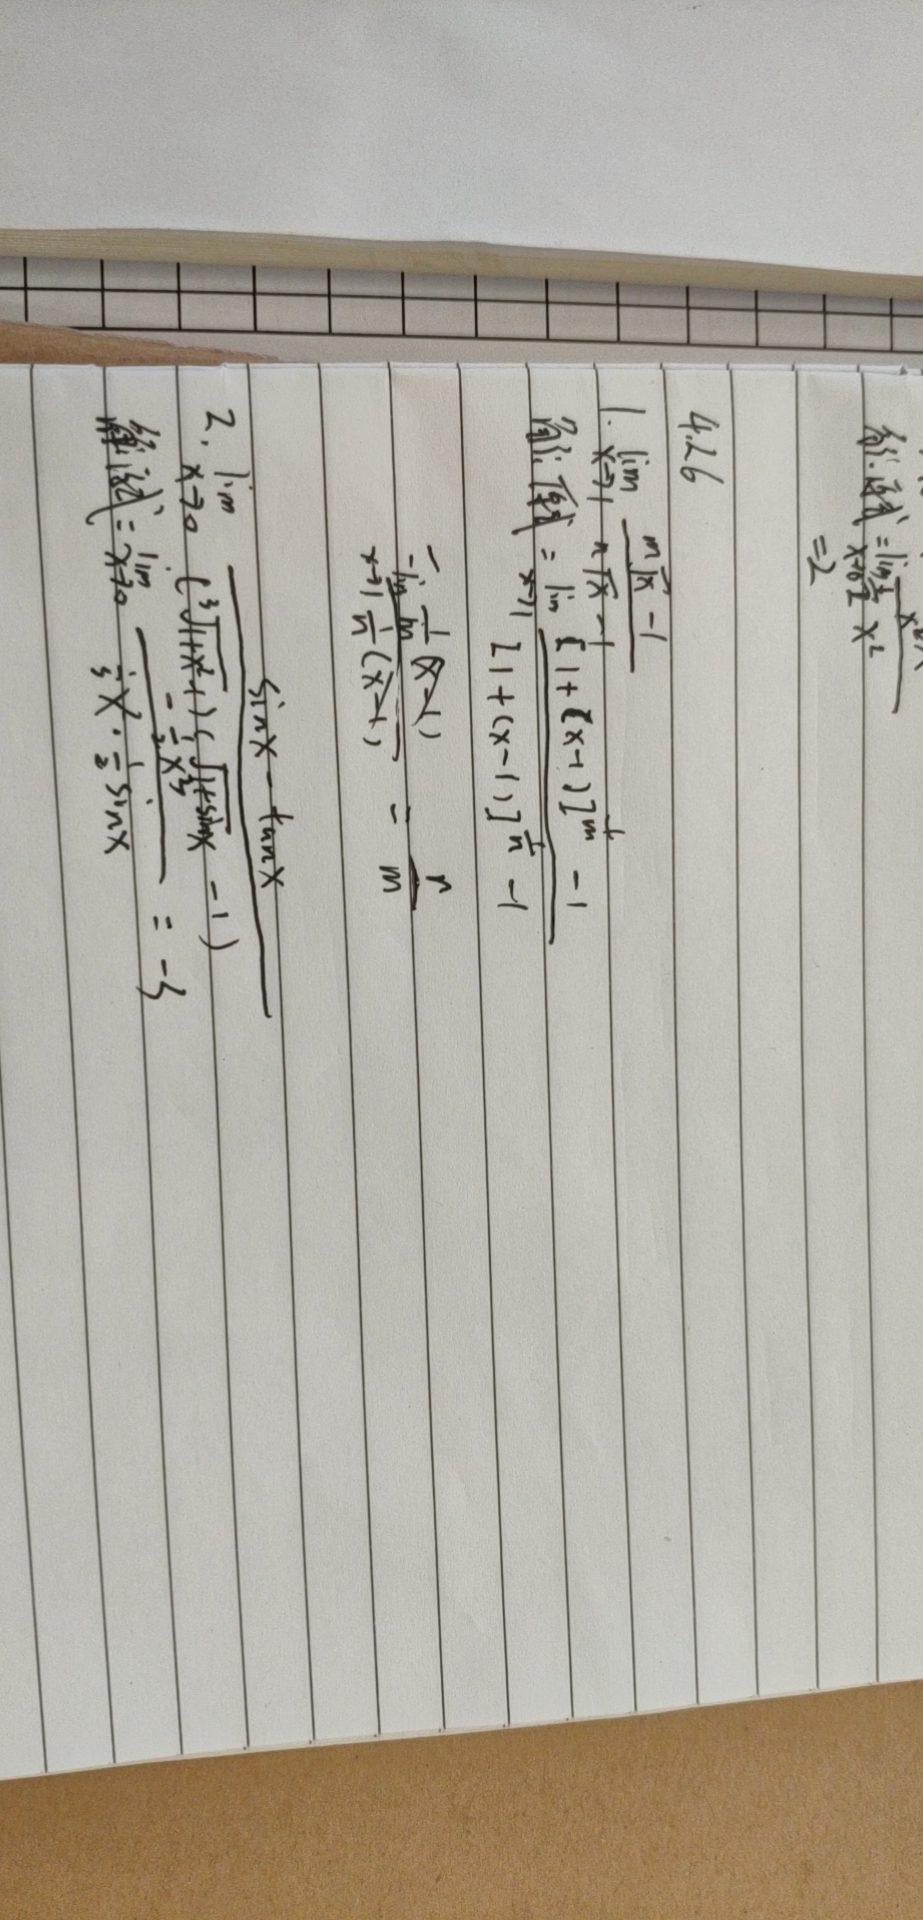 解:原式=lim
x→0 x²
=2
4.26
1. lim
x→1 (ᵐ√x -1)/(ⁿ√x -1)
解:原式=lim
x→1 ([1+(x-1)]^(1/m) -1)/([1+(x-1)]^(1/n) -1)
=lim
x→1 (1/m (x-1))/(1/n (x-1)) = n/m
2. lim
x→0 (sinx-tanx)/((³√1+x² +1)(√1+sinx -1))
解:原式=lim
x→0 (-1/2 x³)/(1/3 x²·1/2 sinx) = -3